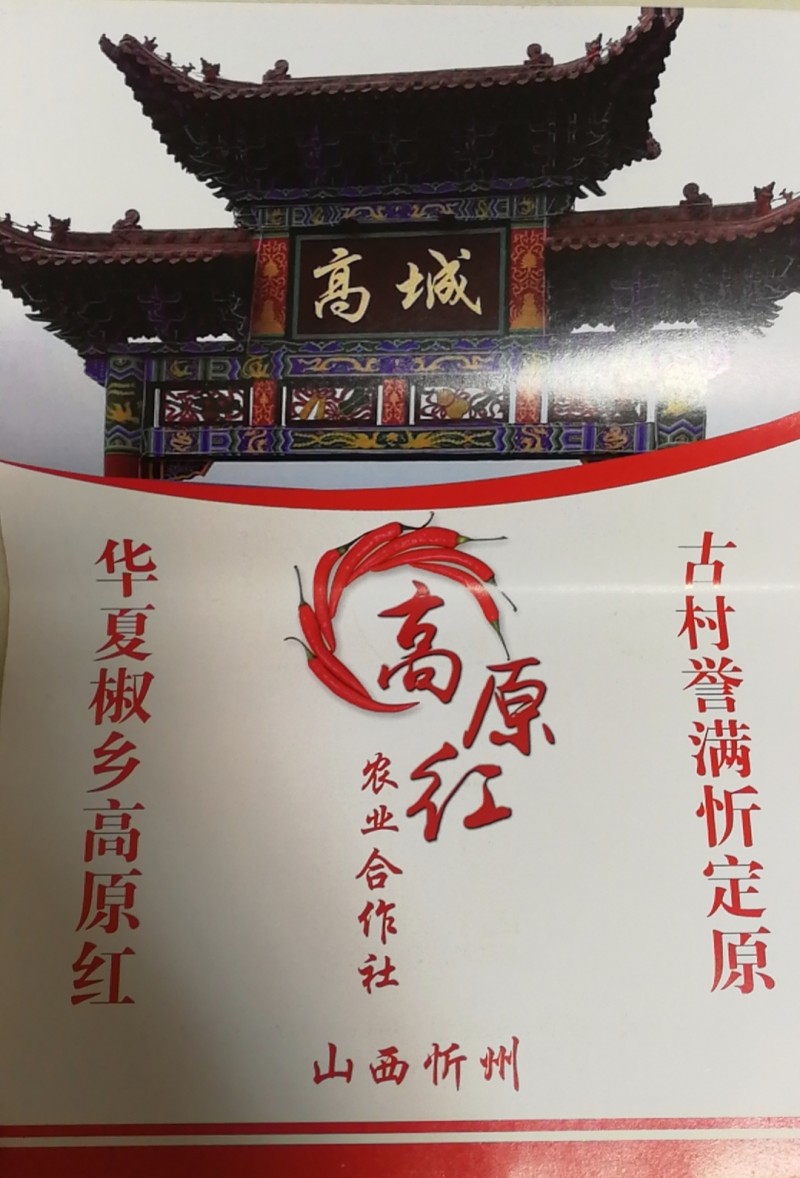 高城
古村誉满忻定原
华夏椒乡高原红
高原红
农业合作社
山西忻州